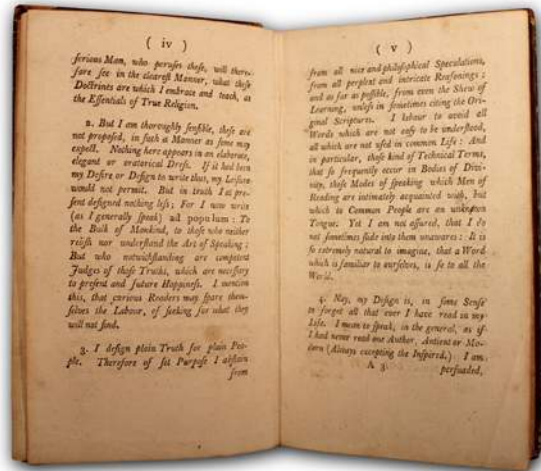 ( iv )
ſerious Man, who peruſes theſe, will there-
fore ſee in the cleareſt Manner, what thoſe
Doctrines are which I embrace and teach, as
the Eſſentials of True Religion.
2. But I am thoroughly ſenſible, theſe are
not propoſed, in ſuch a Manner as ſome may
expect. Nothing here appears in an elaborate,
elegant or oratorical Dreſs. If it had been
my Deſire or Deſign to write thus, my Leiſure
would not permit. But in truth I at pre-
ſent deſigned nothing leſs; For I now write
(as I generally ſpeak) ad populum: To
the Bulk of Mankind, to thoſe who neither
reliſh nor underſtand the Art of Speaking;
But who notwithſtanding are competent
Judges of thoſe Truths, which are neceſſary
to preſent and future Happineſs. I mention
this, that curious Readers may ſpare them-
ſelves the Labour, of ſeeking for what they
will not find.
3. I deſign plain Truth for plain Peo-
ple. Therefore of ſet Purpoſe I abſtain
from
( v )
from all nice and philoſophical Speculations,
from all perplext and intricate Reaſonings;
and as far as poſſible, from even the Shew of
Learning, unleſs in ſometimes citing the Ori-
ginal Scriptures. I labour to avoid all
Words which are not eaſy to be underſtood,
all which are not uſed in common Life: And
in particular, thoſe kind of Technical Terms,
that ſo frequently occur in Bodies of Divi-
nity, thoſe Modes of ſpeaking which Men of
Reading are intimately acquainted with, but
which to Common People are an unknown
Tongue. Yet I am not aſſured, that I do
not ſometimes ſlide into them unawares: It is
ſo extremely natural to imagine, that a Word
which is familiar to ourſelves, is ſo to all the
World.
4. Nay, my Deſign is, in ſome Senſe
to forget all that ever I have read in my
Life. I mean to ſpeak, in the general, as if
I had never read one Author, Antient or Mo-
dern (Always excepting the Inſpired.) I am
A 3. perſuaded,